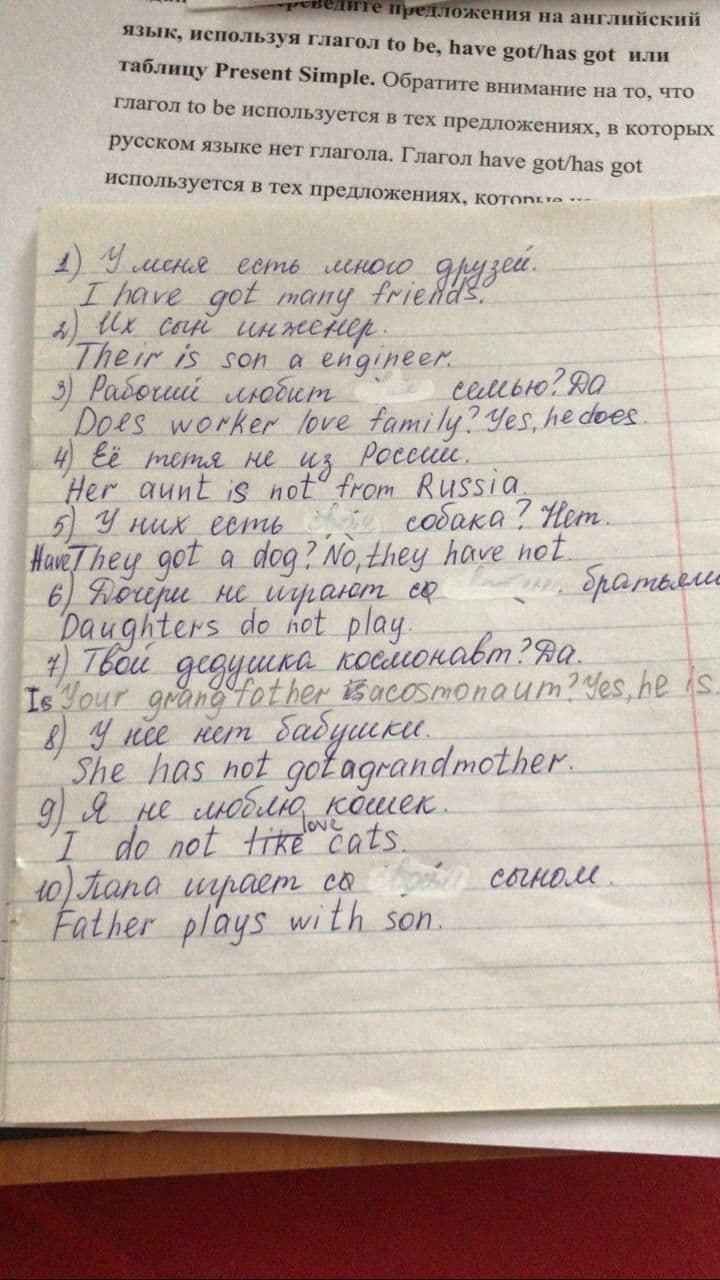 ведите предложения на английский
язык, используя глагол to be, have got/has got или
таблицу Present Simple. Обратите внимание на то, что
глагол to be используется в тех предложениях, в которых
русском языке нет глагола. Глагол have got/has got
используется в тех предложениях, которые
1) У меня есть много друзей.
I have got many friends.
2) Их сын инженер.
Their is son a engineer.
3) Рабочий любит семью? Да
Does worker love family? Yes, he does.
4) Её тетя не из России.
Her aunt is not from Russia
5) У них есть собака? Нет.
Have They got a dog? No, they have not.
6) Дочери не играют со братьями
Daughters do not play.
7) Твой дедушка космонавт? Да.
Is Your grangfather is a cosmonaum? Yes, he is.
8) У нее нет бабушки.
She has not got a grandmother.
9) Я не люблю кошек.
I do not like love cats.
10) Папа играет со сыном.
Father plays with son.